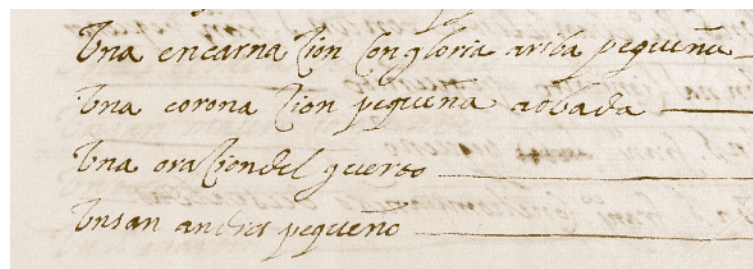 Una encarnaçion con gloria ariba pequeña
Una coronaçion pequeña aobada
Una oraçion del guerto
Un san andres pequeño